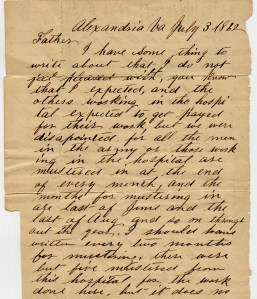 Alexandria Va July 3 1862
Father
I have some thing to
write about that I do not
feel pleased with, you know
that I expected, and the
others working in the hospi
tal expected to get payed
for their work, but we were
disapointed, for all the men
in the army or those work
ing in the hospital are
mustered in at the end
of every month, and the
months for mustering in
are last of June and the
last of Aug, and so on through
out the year, I should have
written every two months
for mustering, there were
but five mustered from
this hospital for the work
done here, but it does no